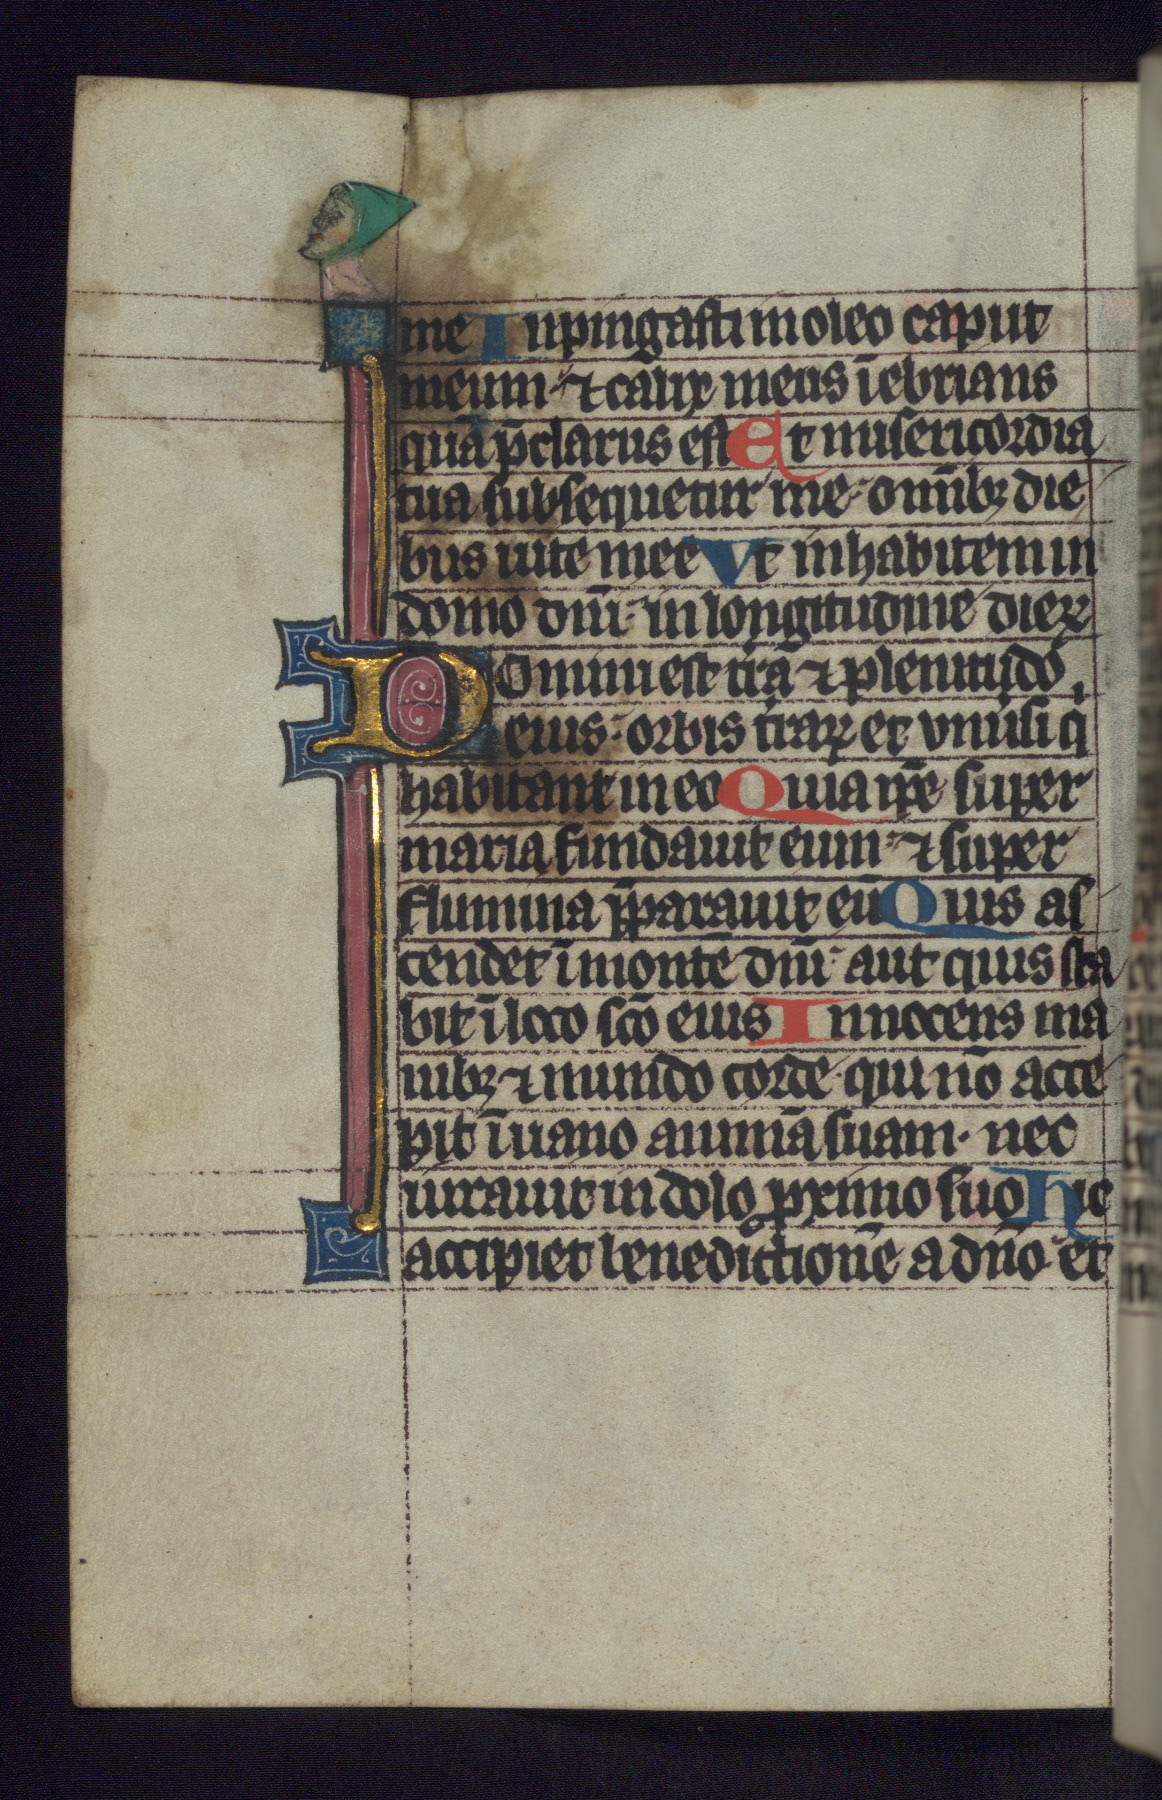 me Inpingasti in oleo caput
meum· ⁊ calix meus īebrians
quā p̄clarus est Et misericordia
tua subsequetur me· omĩbꝫ die
bus uite mee Vt inhabitem in
domo dñi· in longitudine dieꝝ
Domini est t̃ra ⁊ plenitudo
eius· orbis t̃raꝝ et vniũsi q̃
habitant in eo Quia ip̃e super
maria fundauit eum· ⁊ super
flumina p̄parauit eū Quis as
cendet ī montē dñi· aut quis sta
bit ī loco sc̃o eius Innocens ma
nibꝫ ⁊ mundo corde· qui nō acce
pit ī uano animā suam· nec
iurauit in dolo ꝓximo suo Hic
accipiet benedictionē a dñō· et